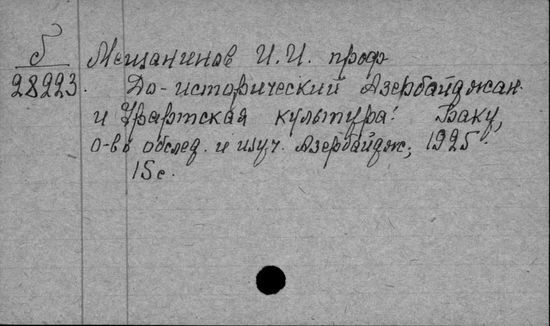 Б
28223.
Мещанинов И.И. проф
До-исторический Азербайджан
и Урартская культура. Баку,
о-во обслед. и изуч. Азербайдж, 1925.
15 с.